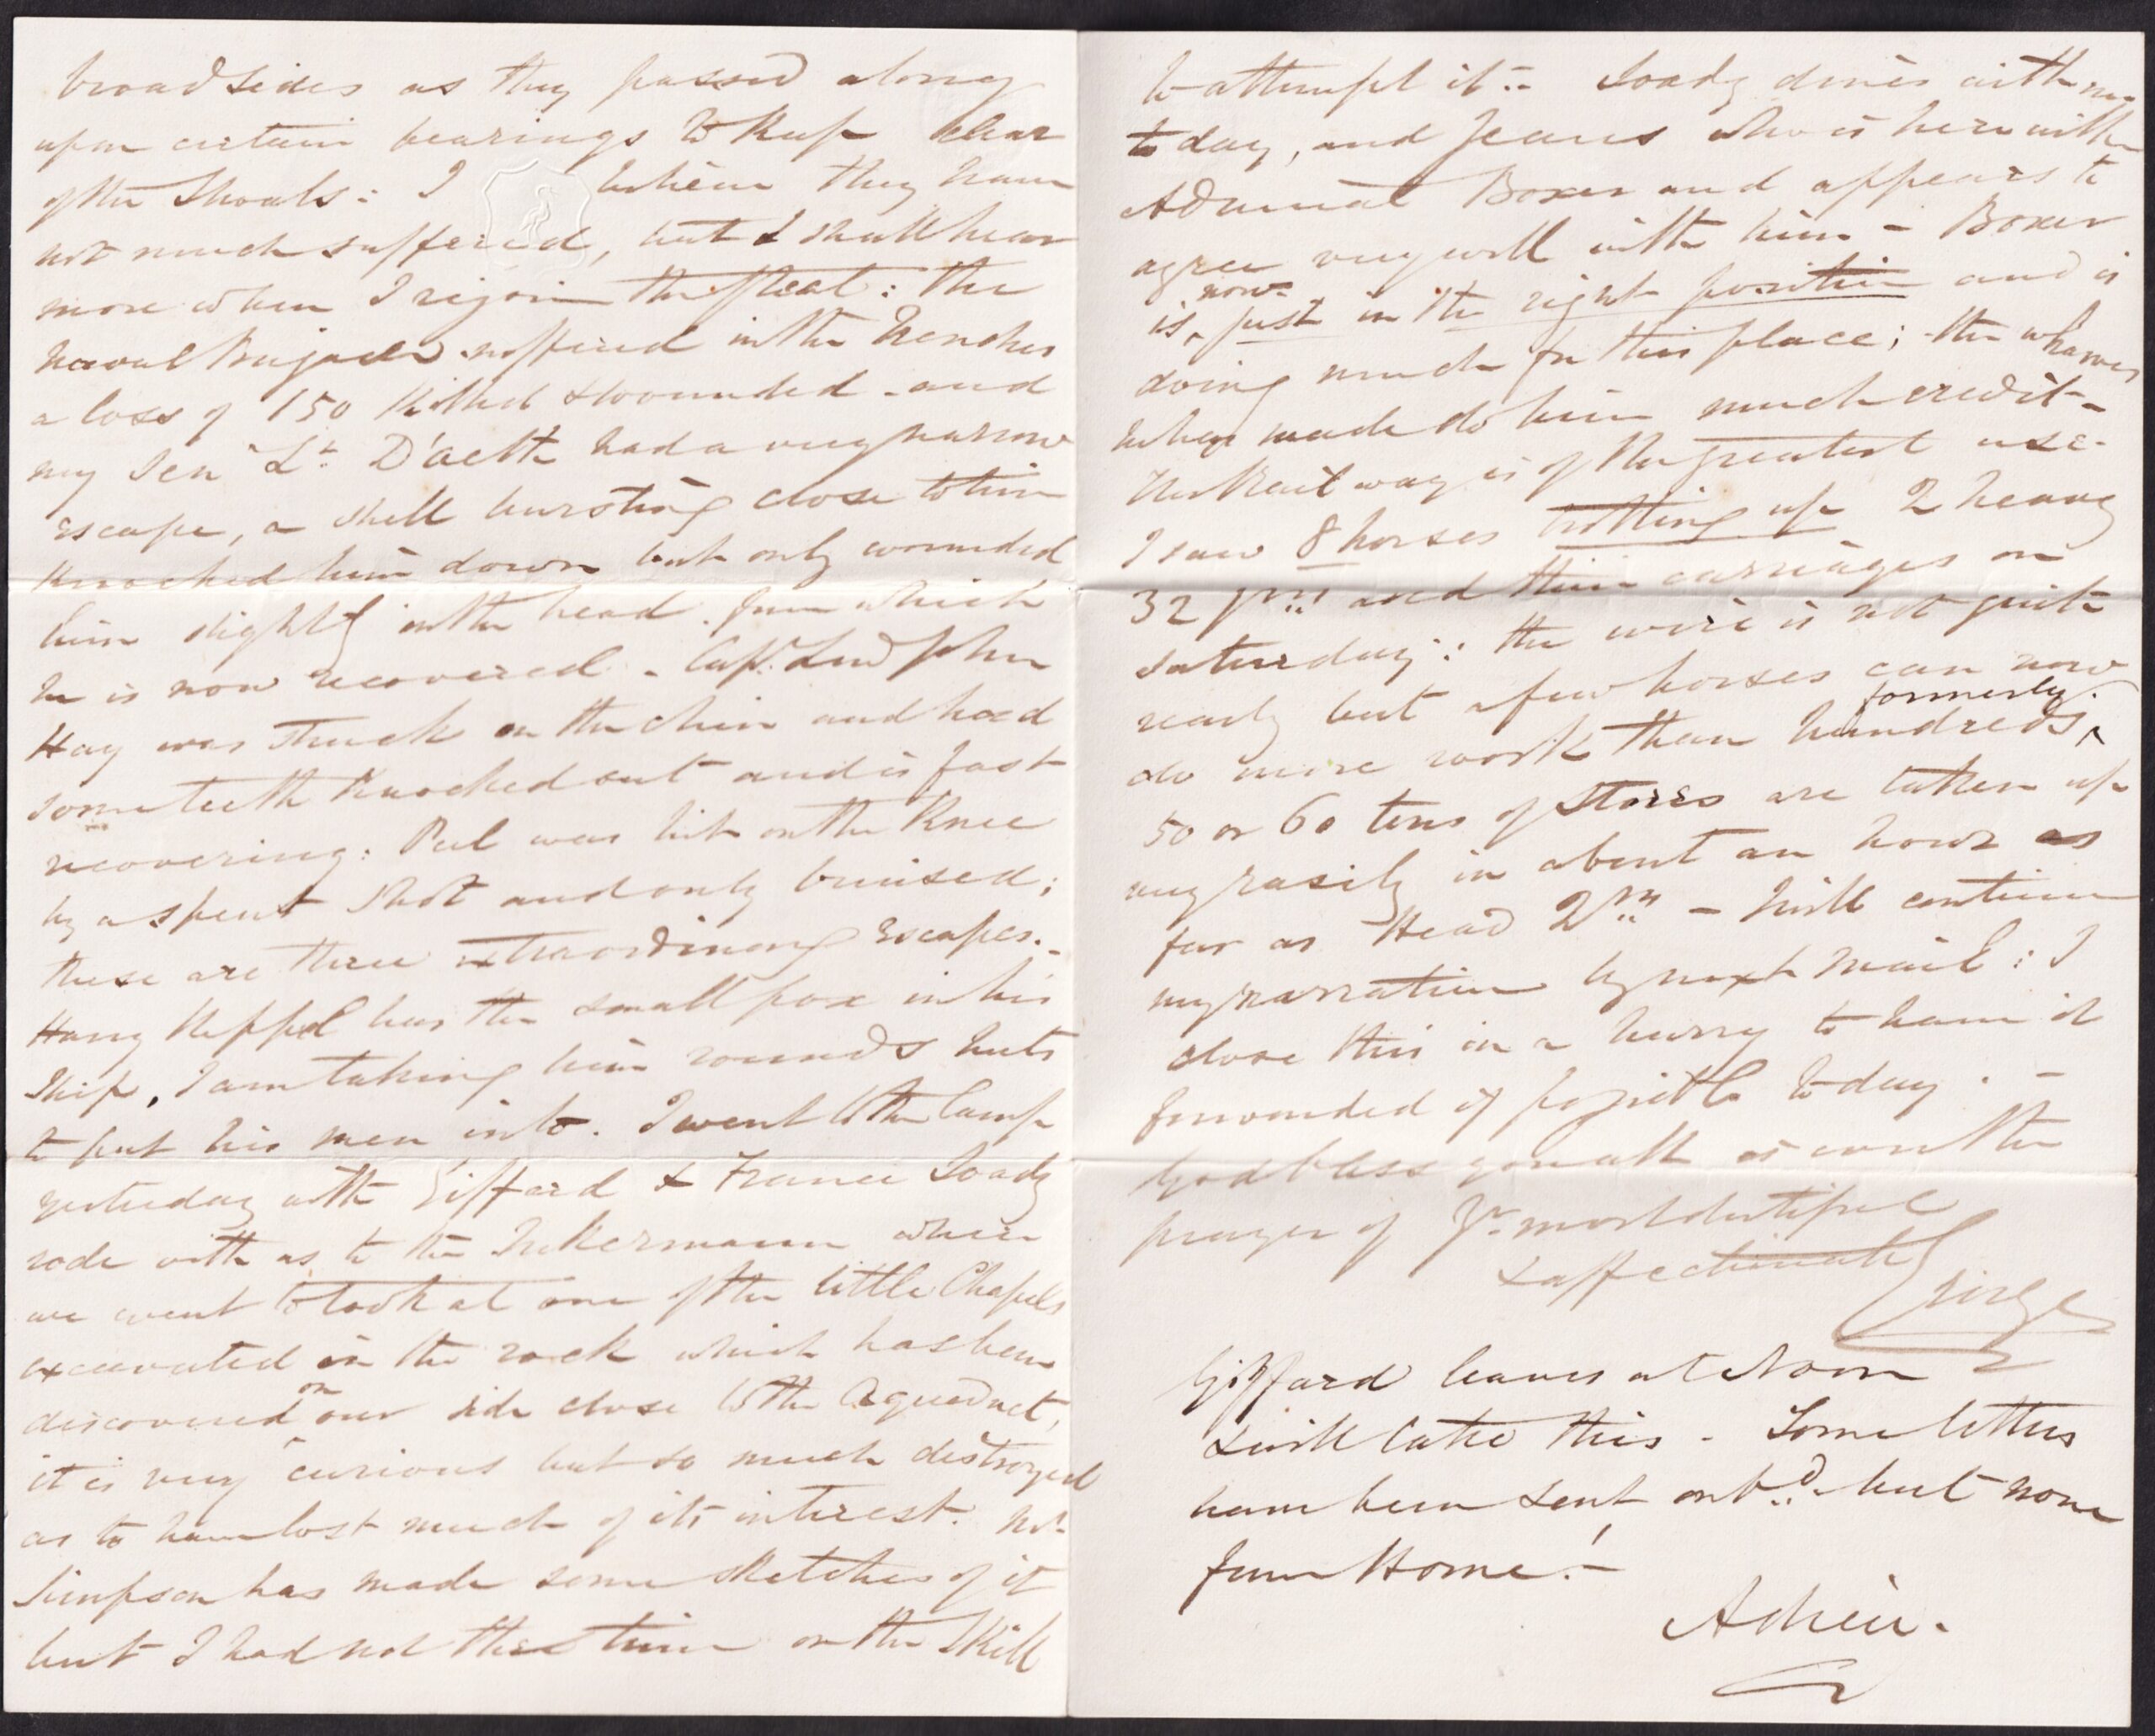 broadsides as they passed along
upon certain bearings to keep clear
of the Shoals: I believe they have
not much suffered, but I shall hear
more when I rejoin the fleet: the
Naval Brigade suffered in the Trenches
a loss of 150 killed & wounded - and
my Senr Lt. D'aeth had a very narrow
escape, a shell bursting close to him
knocked him down but only wounded
him slightly in the head from which
he is now recovered - Capt. Lord John
Hay was struck on the chin and had
some teeth knocked out and is fast
recovering: Peel was hit on the knee
by a spent shot and only bruised;
these are three extraordinary escapes.-
Harry Keppel has the small pox in his
Ship, I am taking him rounds huts
to put his men into. I went to the Camp
yesterday with Giffard & France Soady
rode with us to the Inkermann where
we went to look at one of the little Chapels
excavated in the rock which has been
discovered on our side close to the Aqueduct,
it is very curious but so much destroyed
as to have lost much of its interest. Mr.
Simpson has made some sketches of it
but I had not the time or the Skill
to attempt it:- Soady dines with me
to day, and Jeans who is here with
Admiral Boxer and appears to
agree very well with him - Boxer
is, now just in the right position and is
doing much for this place; the wharves
when made do him much credit -
The Railway is of the greatest use -
I saw 8 horses trotting up 2 heavy
32 prs and their carriages on
Saturday: the wire is not quite
ready but a few horses can now
do more work than hundreds, formerly.
50 or 60 tons of Stores are taken up
very easily in about an hour as
far as Head Qrs - I will continue
my narration by next mail: I
close this in a hurry to have it
forwarded if possible to day. -
God bless you all is ever the
prayer of yr. most dutiful
& affectionate
George
Giffard leaves at Noon
& will take this - Some letters
have been sent on bd. but none
from Home! -
Adieu.